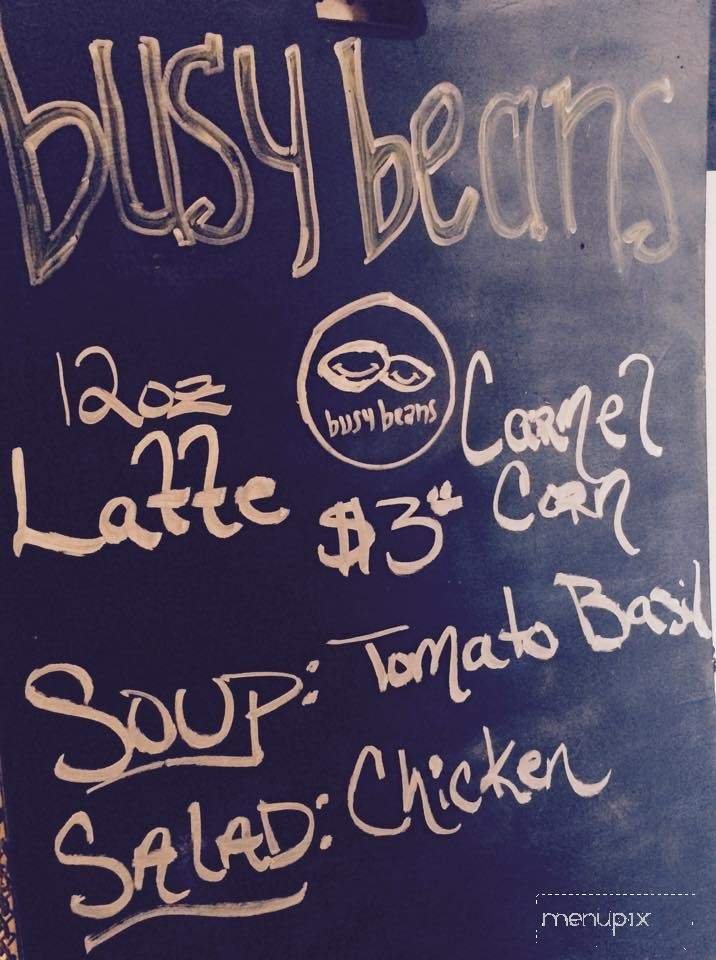 busy beans
busy beans
12oz Carmel
Latte $3 Corn
Soup: Tomato Basil
Salad: Chicken
menupix